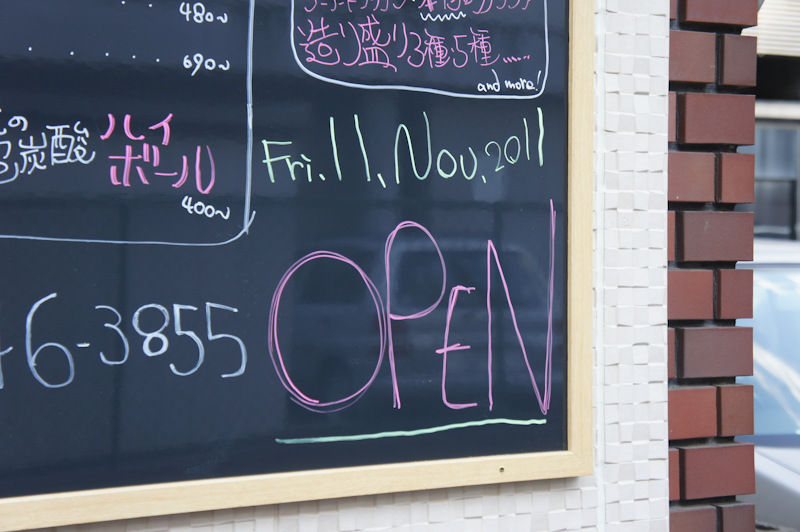 480~
690~
炭酸 ハイ
ボール
400~
46-3855
造り盛り3種・5種……
and more!
Fri. 11. Nov. 2011
OPEN